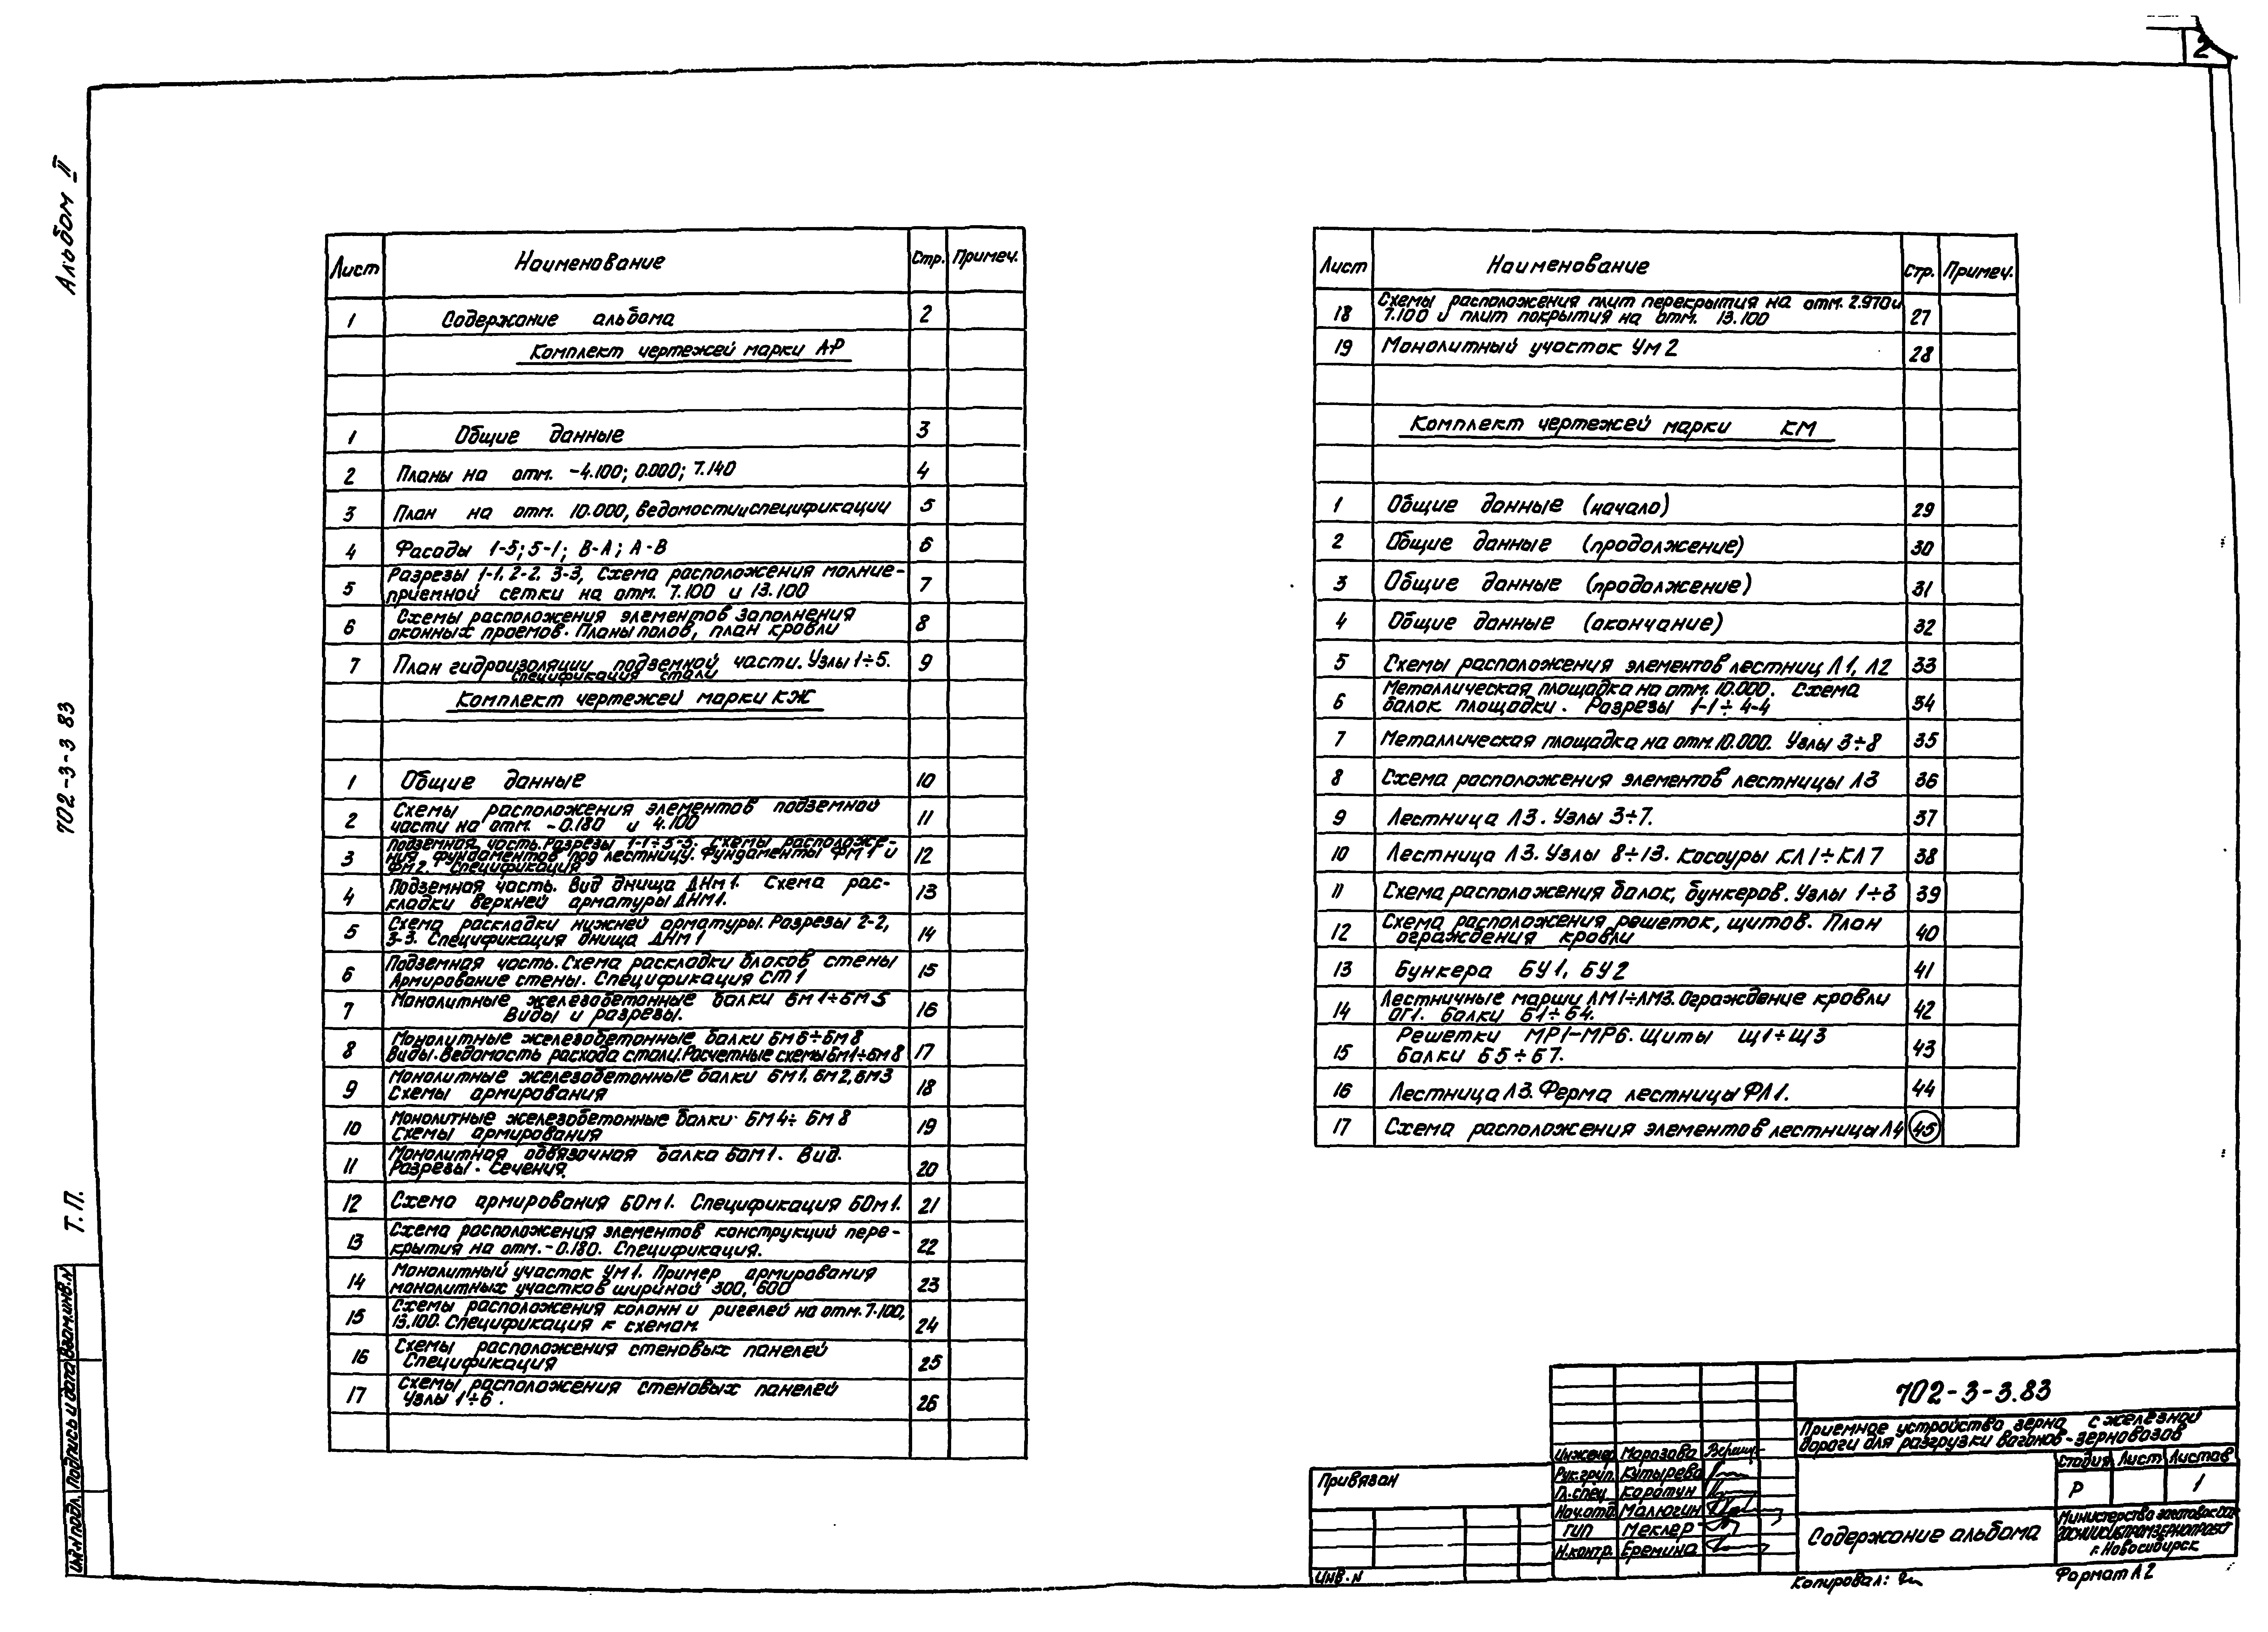 2
Альбом II
702-3-3 83
Т. П.
Инв.Nподл. Подпись и дата Взам.инв.N
Лист Наименование Стр. Примеч.
1 Содержание альбома 2
Комплект чертежей марки АР
1 Общие данные 3
2 Планы на отм. -4.100; 0.000; 7.140 4
3 План на отм. 10.000, ведомости и спецификации 5
4 Фасады 1-5; 5-1; В-А; А-В 6
5 Разрезы 1-1. 2-2. 3-3, Схема расположения молние- 7
приемной сетки на отм. 7.100 и 13.100
6 Схемы расположения элементов заполнения 8
оконных проемов. Планы полов, план кровли
7 План гидроизоляции подземной части. Узлы 1÷5. 9
Спецификация стали
Комплект чертежей марки КЖ
1 Общие данные 10
2 Схемы расположения элементов подземной 11
части на отм. -0.180 и 4.100
3 Подземная часть. Разрезы 1-1÷5-5. Схемы расположе- 12
ния фундаментов под лестницу. Фундаменты ФМ1 и
ФМ2. Спецификация
4 Подземная часть. Вид днища ДНм1. Схема рас- 13
кладки верхней арматуры ДНм1.
5 Схема раскладки нижней арматуры. Разрезы 2-2, 14
3-3. Спецификация днища ДНМ1
6 Подземная часть. Схема раскладки блоков стены 15
Армирование стены. Спецификация СТ1
7 Монолитные железобетонные балки БМ1÷БМ5 16
Виды и разрезы.
8 Монолитные железобетонные балки БМ6÷БМ8 17
Виды. Ведомость расхода стали. Расчетные схемы БМ1÷БМ8
9 Монолитные железобетонные балки БМ1, БМ2, БМ3 18
Схемы армирования
10 Монолитные железобетонные балки БМ4÷ БМ8 19
Схемы армирования
11 Монолитная обвязочная балка БОМ1. Вид. 20
Разрезы. Сечения.
12 Схема армирования БОм1. Спецификация БОм1. 21
13 Схема расположения элементов конструкций пере- 22
крытия на отм. -0.180. Спецификация.
14 Монолитный участок Ум1. Пример армирования 23
монолитных участков шириной 300, 600
15 Схемы расположения колонн и ригелей на отм. 7.100, 24
13.100. Спецификация к схемам.
16 Схемы расположения стеновых панелей 25
Спецификация
17 Схемы расположения стеновых панелей 26
Узлы 1÷6.
Лист Наименование Стр. Примеч.
18 Схемы расположения плит перекрытия на отм. 2.970 и 27
7.100 и плит покрытия на отм. 13.100
19 Монолитный участок Ум2 28
Комплект чертежей марки КМ
1 Общие данные (начало) 29
2 Общие данные (продолжение) 30
3 Общие данные (продолжение) 31
4 Общие данные (окончание) 32
5 Схемы расположения элементов лестниц Л1, Л2 33
6 Металлическая площадка на отм. 10.000. Схема 34
балок площадки. Разрезы 1-1÷4-4
7 Металлическая площадка на отм. 10.000. Узлы 3÷8 35
8 Схема расположения элементов лестницы Л3 36
9 Лестница Л3. Узлы 3÷7. 37
10 Лестница Л3. Узлы 8÷13. Косоуры КЛ1÷КЛ7 38
11 Схема расположения балок, бункеров. Узлы 1÷3 39
12 Схема расположения решеток, щитов. План 40
ограждения кровли
13 Бункера БУ1, БУ2 41
14 Лестничные марши ЛМ1÷ЛМ3. Ограждение кровли 42
ОГ1. Балки Б1÷Б4.
15 Решетки МР1-МР6. Щиты Щ1÷Щ3 43
Балки Б5÷Б7.
16 Лестница Л3. Ферма лестницы ФЛ1. 44
17 Схема расположения элементов лестницы Л4 45
Привязан
Инв.N
Инженер Морозова
Рук.груп. Кутырева
Гл.спец. Коратун
Нач.отд. Малюгин
ГИП Меклер
Н.контр. Еремина
702-3-3.83
Приемное устройство зерна с железной
дороги для разгрузки вагонов-зерновозов
Стадия Лист Листов
Р 1
Содержание альбома
Министерство заготовок
г. Новосибирск
Копировал:
Формат А2